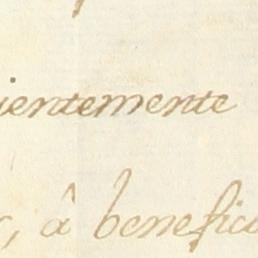 ientemente
, â benefic